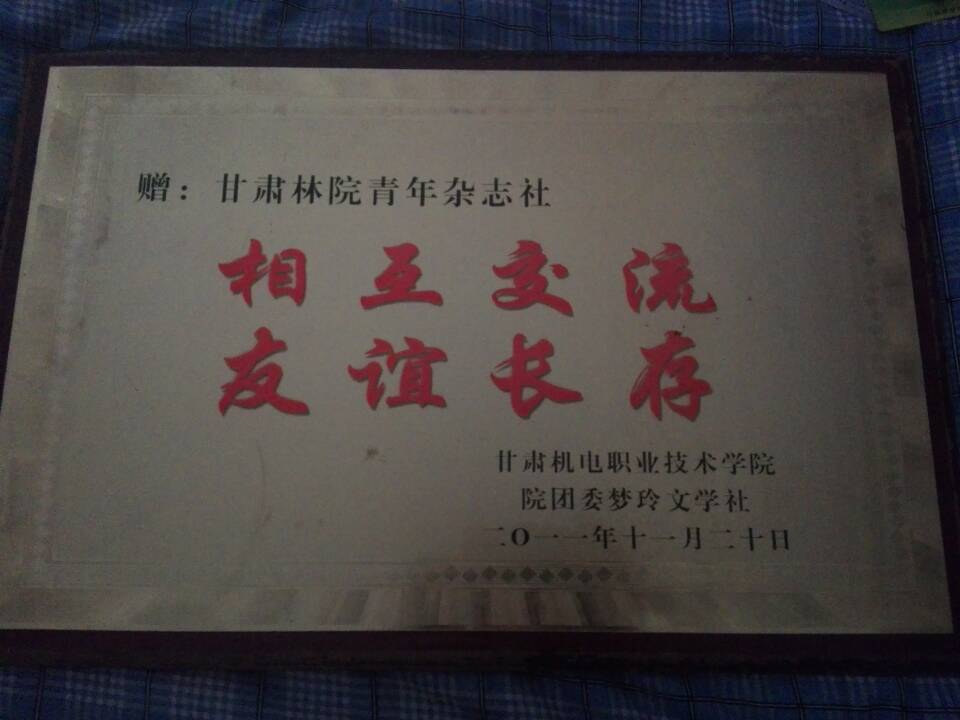 赠：甘肃林院青年杂志社
相互交流
友谊长存
甘肃机电职业技术学院
院团委梦玲文学社
二〇一一年十一月二十日